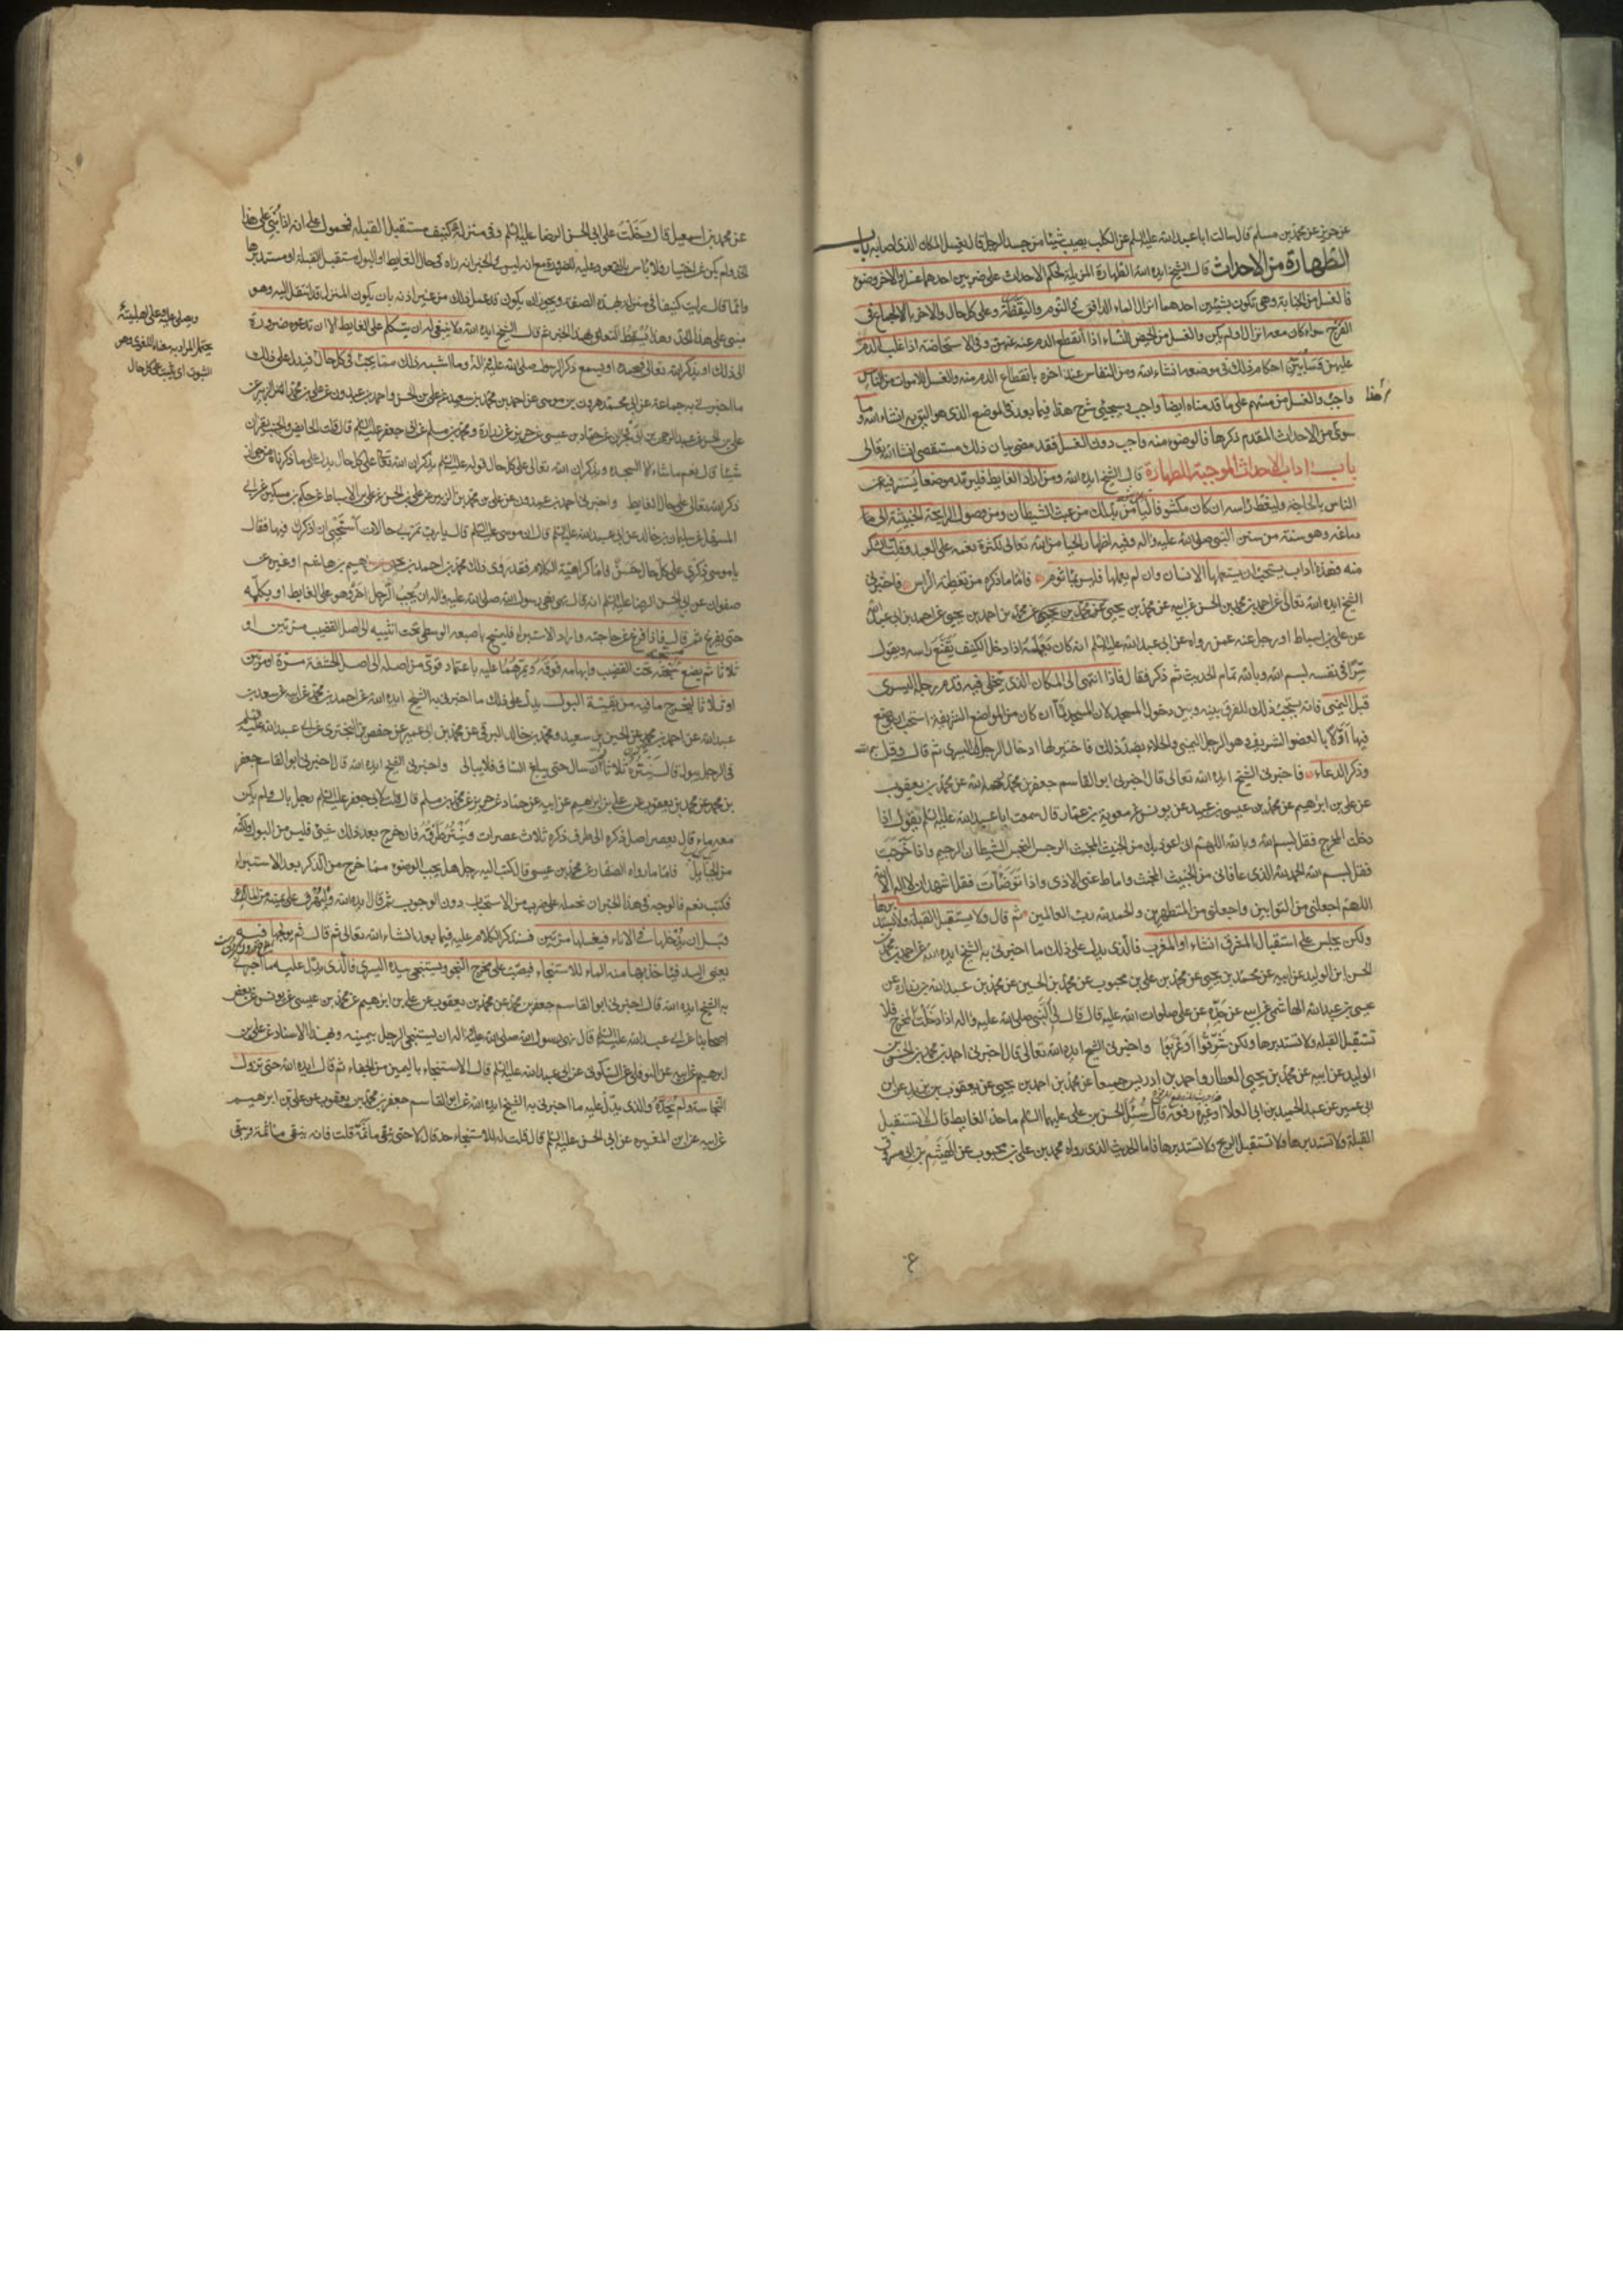 عن حريز عن محمد بن مسلم قال سالت ابا عبد الله عليه السلم عن الكلب يصيب شيئا من جسد الرجل قال يغسل المكان الذي اصابه باب
الطهارة من الاحداث قال الشيخ ايده الله الطهارة المزيلة لحكم الاحداث على ضربين احدهما غسل والاخر وضوء
فالغسل من الجنابة وهي تكون بشيئين احدهما انزال الماء الدافق في النوم واليقظة وعلى كل حال والاخر بالايلاج في
الفرج سواء كان معه انزال او لم يكن والغسل من الحيض للنساء اذا انقطع الدم عنه منهن وفي الاستحاضة اذا غلب الدم
عليهن وسابين احكام ذلك في موضعه انشاء الله ومن النفاس عند اخره بانقطاع الدم منه والغسل للاموات من الناس
واجب والغسل من مسهم على ما قدمناه ايضا واجب وسيجيئ شرح هذا فيما بعد في الموضع الذي هو اليق به انشاء الله وما
سوى من الاحداث المقدم ذكرها فالوضوء منه واجب دون الغسل فقد مضى بيان ذلك مستقصى انشاء الله تعالى
باب اداب الاحداث الموجبة للطهارة قال الشيخ ايده الله ومن اراد الغايط فليرتد موضعا يستتر فيه عن
الناس بالحاجة وليغط راسه ان كان مكشوفا ليامن بذلك من عبث الشيطان ومن وصول الرايحة الخبيثة الى
دماغه وهو سنة من سنن النبي صلى الله عليه واله وفيه اظهار الحيا من الله تعالى لكثرة نعمه على العبد وقلة الشكر
منه فهذه اداب يستحب ان يستعملها الانسان وان لم يعملها فليس بماثوم فاما ما ذكره من تغطية الراس فاخبرني
الشيخ ايده الله تعالى عن احمد بن محمد بن الحسن عن ابيه عن محمد بن يحيى عن محمد بن احمد بن يحيى عن احمد بن ابي عبد الله
عن علي بن اسباط او رجل عنه عمن رواه عن ابي عبد الله عليه السلم انه كان يعمله اذا دخل الكنيف يقنع راسه ويقول
سرا في نفسه بسم الله وبالله تمام الحديث ثم ذكر فقال فاذا انتهى الى المكان الذي يتخلى فيه قدم رجله اليسرى
قبل اليمنى فانه يستحب ذلك للفرق بينه وبين دخول المسجد لان المسجد لما ان كان من المواضع الشريفة استحب ان يوضع
فيها اولا بالعضو الشريف وهو الرجل اليمنى والخلاء بضد ذلك فاختير لها ادخال الرجل اليسرى ثم قال وقل بسم الله
وذكر الدعاء فاخبرني الشيخ ايده الله تعالى قال اخبرني ابو القاسم جعفر بن محمد رحمه الله عن محمد بن يعقوب
عن علي بن ابراهيم عن محمد بن عيسى بن عبيد عن يونس عن معوية بن عمار قال سمعت ابا عبد الله عليه السلم يقول اذا
دخلت المخرج فقل بسم الله وبالله اللهم اني اعوذ بك من الخبيث المخبث الرجس النجس الشيطان الرجيم واذا خرجت
فقل بسم الله الحمد لله الذي عافاني من الخبيث المخبث واماط عني الاذى واذا توضات فقل اشهد ان لا اله الا الله
اللهم اجعلني من التوابين واجعلني من المتطهرين والحمد لله رب العالمين ثم قال ولا يستقبل القبلة ولا يستدبرها
ولكن يجلس على استقبال المشرق انشاء او المغرب فالذي يدل على ذلك ما اخبرني به الشيخ ايده الله عن احمد بن محمد بن
الحسن ابن الوليد عن ابيه عن محمد بن يحيى عن محمد بن علي بن محبوب عن محمد بن الحسين عن محمد بن عبد الله بن زرارة عن
عيسى بن عبد الله الهاشمي عن ابيه عن جده عن علي صلوات الله عليه قال قال لي النبي صلى الله عليه واله اذا دخلت المخرج فلا
تستقبل القبلة ولا تستدبرها ولكن شرقوا او غربوا واخبرني الشيخ ايده الله تعالى قال اخبرني احمد بن محمد بن الحسن بن
الوليد عن ابيه عن محمد بن يحيى العطار واحمد بن ادريس جميعا عن محمد بن احمد بن يحيى عن يعقوب بن يزيد عن ابن
ابي عمير عن عبد الحميد بن ابي العلا او غيره رفعه قال سئل الحسن بن علي عليهما السلم ما حد الغايط قال لا تستقبل
القبلة ولا تستدبرها ولا تستقبل الريح ولا تستدبرها فاما الحديث الذي رواه محمد بن علي بن محبوب عن الهيثم بن ابي مسروق
عن محمد بن اسمعيل قال دخلت على ابي الحسن الرضا عليه السلم وفي منزله كنيف مستقبل القبلة فمحمول على انه اذا بني على هذا
الحد ولم يكن عن اختيار فلا باس بالقعود عليه للضرورة مع انه ليس في الخبر انه راه في حال الغايط او البول مستقبل القبلة او مستدبرها
وانما قال رايت كنيفا في منزله بهذه الصفة ويجوز ان يكون قد عمل ذلك من غير اذنه بان يكون المنزل قد انتقل اليه وهو
مبني على هذا الحد وهذا يسقط التعلق بهذا الخبر ثم قال الشيخ ايده الله ولا ينبغي له ان يتكلم على الغايط الا ان تدعوه ضرورة
الى ذلك او يذكر الله تعالى فيحمده او يسمع ذكر الرسول صلى الله عليه واله وما اشبه ذلك مما يجب في كل حال فيدل على ذلك
ما اخبرني به جماعة عن ابي محمد هرون بن موسى عن احمد بن محمد بن سعيد عن علي بن الحسن واحمد بن عبدون عن علي بن محمد بن الزبير عن
علي بن الحسن عن عبد الرحمن بن ابي نجران عن حماد بن عيسى عن حريز عن زرارة ومحمد بن مسلم عن ابي جعفر عليه السلم قال قلت الحايض والجنب يقران
شيئا قال نعم ما شاءا الا السجده ويذكران الله تعالى على كل حال قوله عليه السلم يذكران الله تعالى على كل حال يدل على ما ذكرناه من جواز
ذكر الله تعالى على حال الغايط واخبرني احمد بن عبدون عن علي بن محمد بن الزبير عن علي بن الحسن عن علي بن الاسباط عن حكم بن مسكين عن ابي
المستهل عن سليمان بن خالد عن ابي عبد الله عليه السلم قال ان موسى عليه السلم قال يا رب تمر بي حالات استحيي ان اذكرك فيها فقال
يا موسى ذكري على كل حال حسن فاما كراهية الكلام فقد روى ذلك محمد بن احمد بن يحيى عن ابراهيم بن هاشم او غيره عن
صفوان عن ابي الحسن الرضا عليه السلم انه قال نهى رسول الله صلى الله عليه واله ان يجيب الرجل اخر وهو على الغايط او يكلمه
حتى يفرغ ثم قال فاذا فرغ من حاجته واراد الاستبراء فليمسح باصبعه الوسطى تحت انثييه الى اصل القضيب مرتين او
ثلاثا ثم يضع مسبحته تحت القضيب وابهامه فوقه ويمرهما عليه باعتماد قوي من اصله الى اصل الحشفة مرة او مرتين
او ثلاثا ليخرج ما فيه من بقية البول يدل على ذلك ما اخبرني به الشيخ ايده الله عن احمد بن محمد عن ابيه عن سعد بن
عبد الله عن احمد بن محمد عن الحسين بن سعيد ومحمد بن خالد البرقي عن محمد بن ابي عمير عن حفص بن البختري عن ابي عبد الله عليه السلم
في الرجل يبول قال ينتره ثلاثا ثم ان سال حتى يبلغ الساق فلا يبالي واخبرني الشيخ ايده الله قال اخبرني ابو القاسم جعفر
بن محمد عن محمد بن يعقوب عن علي بن ابراهيم عن ابيه عن حماد عن حريز عن محمد بن مسلم قال قلت لابي جعفر عليه السلم رجل بال ولم يكن
معه ماء قال يعصر اصل ذكره الى طرف ذكره ثلاث عصرات وينتر طرفه فان خرج بعد ذلك شيئ فليس من البول ولكنه
من الحبايل فاما ما رواه الصفار عن محمد بن عيسى قال كتب اليه رجل هل يجب الوضوء مما خرج من الذكر بعد الاستبراء
فكتب نعم فالوجه في هذا الخبر ان نحمله على ضرب من الاستحباب دون الوجوب ثم قال ايده الله وليهرق على يمينه من الماء
قبل ان يدخلها في الاناء فيغسلها مرتين فسنذكر الكلام عليه فيما بعد انشاء الله تعالى ثم قال ثم يولجها فيه
يعني اليد فياخذ بها منه الماء للاستنجاء فيصبه على مخرج النجو ويستنجي بيده اليسرى فالذي يدل عليه ما اخبرني
به الشيخ ايده الله قال اخبرني ابو القاسم جعفر بن محمد عن محمد بن يعقوب عن علي بن ابراهيم عن محمد بن عيسى عن يونس عن بعض
اصحابنا عن ابي عبد الله عليه السلم قال نهى رسول الله صلى الله عليه واله ان يستنجي الرجل بيمينه وبهذا الاسناد عن علي بن
ابراهيم عن ابيه عن النوفلي عن السكوني عن ابي عبد الله عليه السلم قال الاستنجاء باليمين من الجفاء ثم قال ايده الله حتى تزول
النجاسة ولم يحده والذي يدل عليه ما اخبرني به الشيخ ايده الله عن ابي القاسم جعفر بن محمد عن محمد بن يعقوب عن علي بن ابراهيم
عن ابيه عن ابن المغيره عن ابي الحسن عليه السلم قال قلت له للاستنجاء حد قال لا حتى ينقى ما ثمة قلت فانه ينقى ما ثمة ويبقى
يحتمل المراد به معناه اللغوي وهو